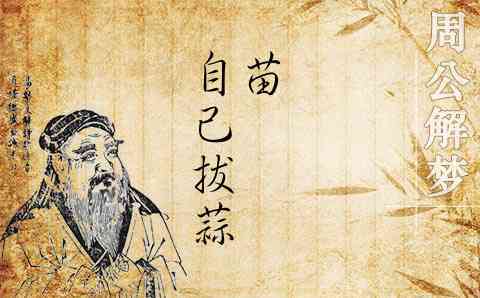 周公解梦
苗
自己拔蒜